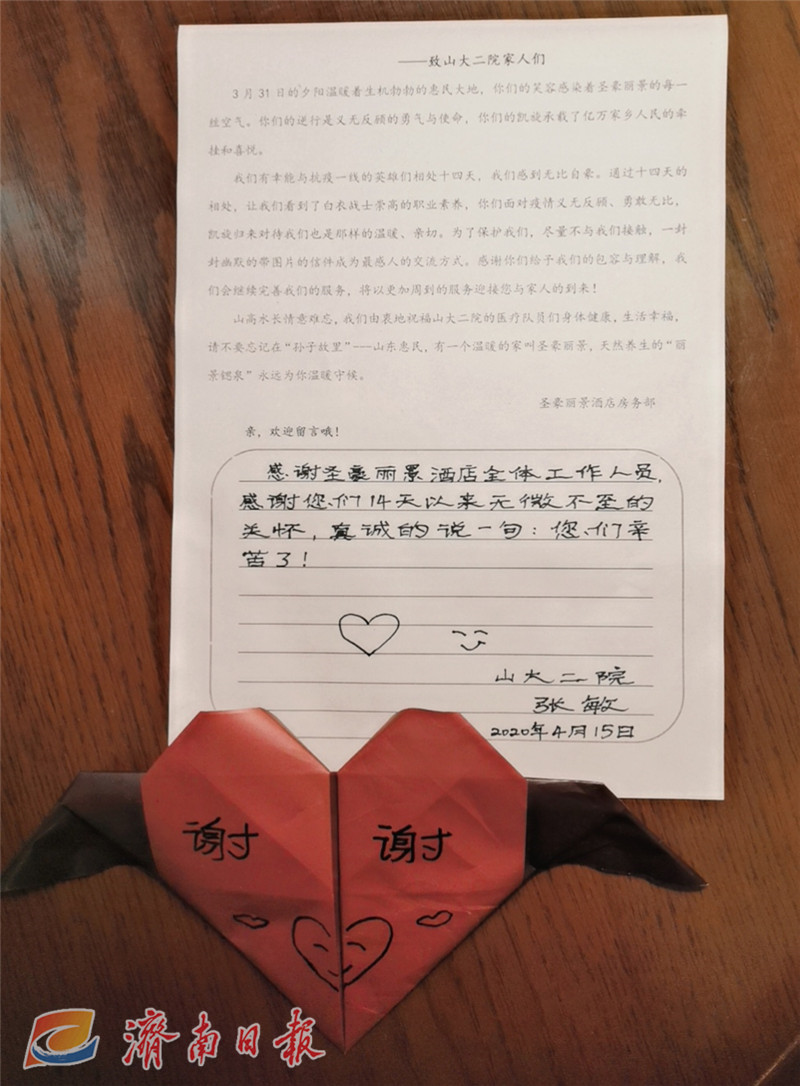 ——致山大二院家人们
3月31日的夕阳温暖着生机勃勃的惠民大地，你们的笑容感染着圣豪丽景的每一
丝空气。你们的逆行是义无反顾的勇气与使命，你们的凯旋承载了亿万家乡人民的牵
挂和喜悦。
我们有幸能与抗疫一线的英雄们相处十四天，我们感到无比自豪。通过十四天的
相处，让我们看到了白衣战士崇高的职业素养，你们面对疫情义无反顾、勇敢无比，
凯旋归来对待我们也是那样的温暖、亲切。为了保护我们，尽量不与我们接触，一封
封幽默的带图片的信件成为最感人的交流方式。感谢你们给予我们的包容与理解，我
们会继续完善我们的服务，将以更加周到的服务迎接您与家人的到来！
山高水长情意难忘，我们由衷地祝福山大二院的医疗队员们身体健康，生活幸福，
请不要忘记在“孙子故里”---山东惠民，有一个温暖的家叫圣豪丽景，天然养生的“丽
景锶泉”永远为你温暖守候。
圣豪丽景酒店房务部
亲，欢迎留言哦！
感谢圣豪丽景酒店全体工作人员，
感谢您们14天以来无微不至的
关怀，真诚的说一句：您们辛
苦了！
山大二院
张敏
2020年4月15日
谢 谢
濟南日報